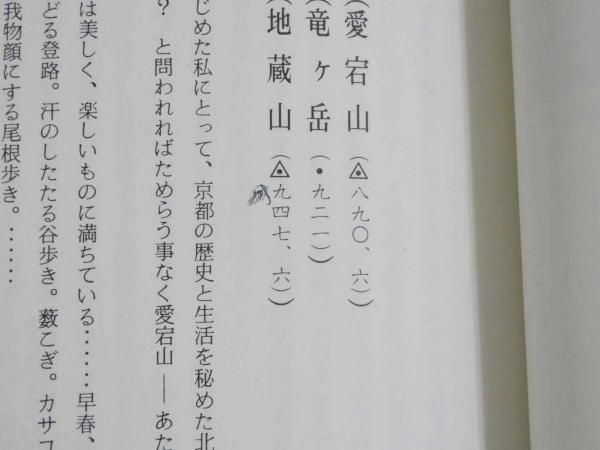 (愛宕山(◬八九〇、六))
(竜ヶ岳(・九二一))
(地蔵山(◬九四七、六))
じめた私にとって、京都の歴史と生活を秘めた北
? と問われればためらう事なく愛宕山――あた
は美しく、楽しいものに満ちている……早春、
どる登路。汗のしたたる谷歩き。藪こぎ。カサコ
我物顔にする尾根歩き。……